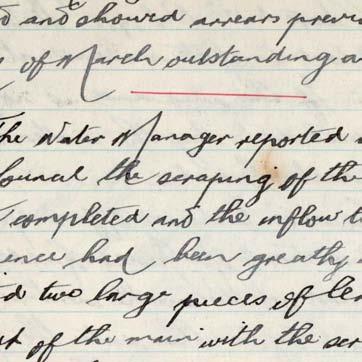 and showed arrears previ
of March outstanding a
The Water Manager reported
Council the scraping of the
completed and the inflow t
ence had been greatly
d two large pieces of le
of the main with the scr